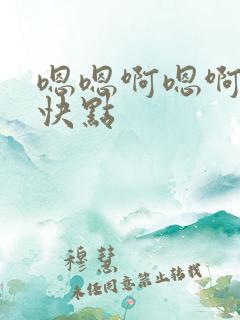 嗯嗯啊嗯啊
快點
穆慧
未经同意禁止转载